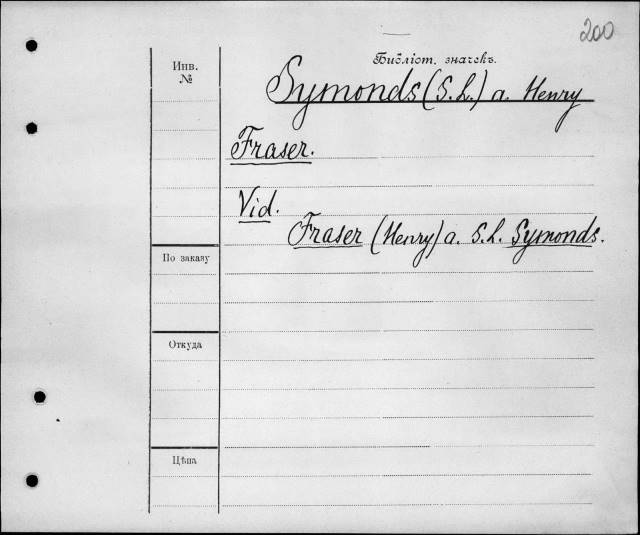 200
Библіот. значекъ.
Инв.
№
Symonds (S. L.) a. Henry
Fraser.
Vid.
Fraser (Henry) a. S. L. Symonds.
По заказу
Откуда
Цѣна